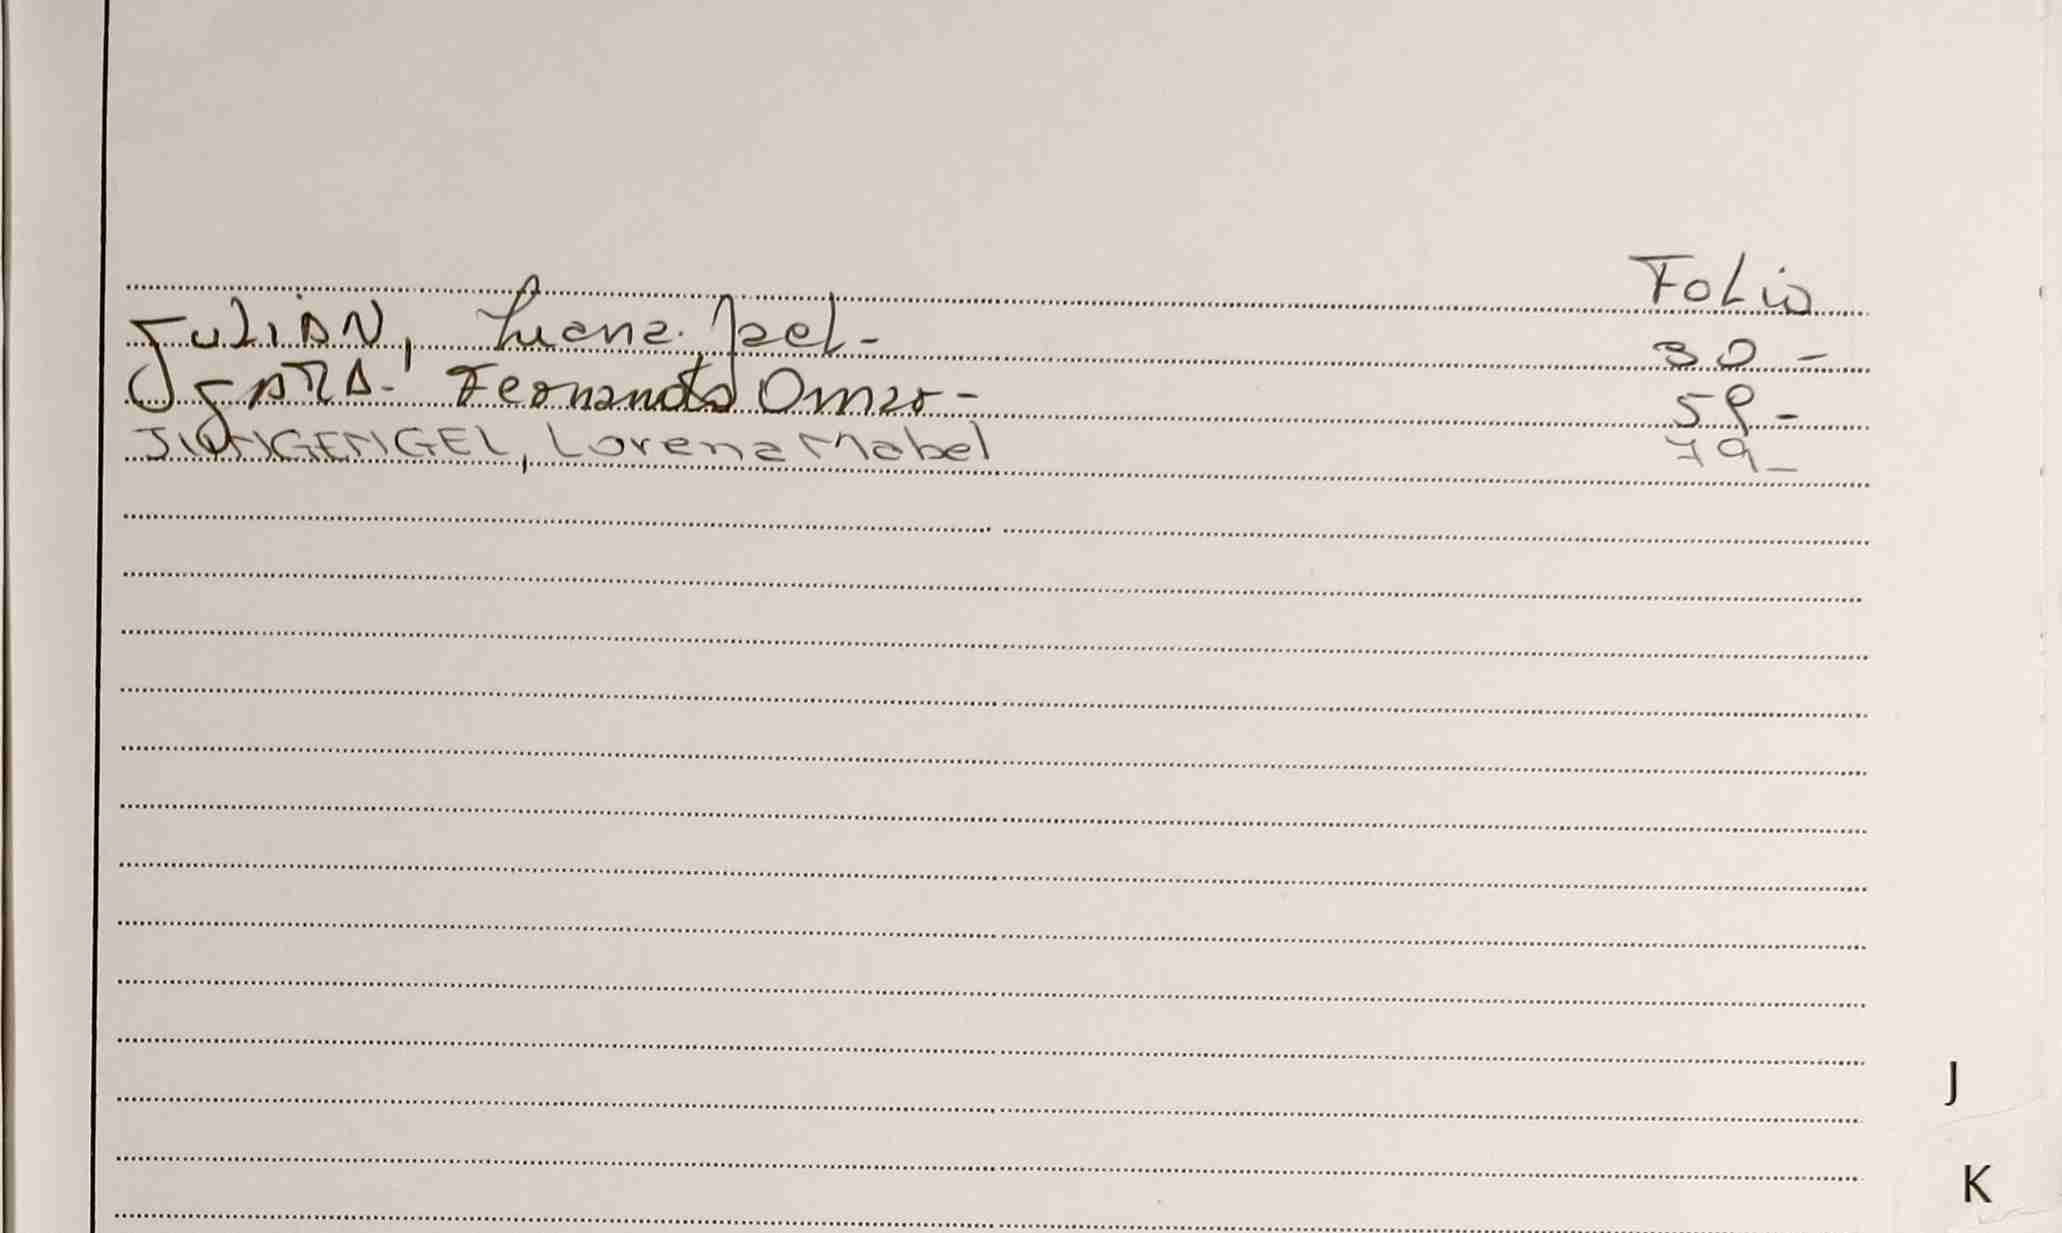 Folio
JULIAN, Luana Izel- 30-
JARA-' Fernando Omar- 59-
JUNGENGEL, Lorena Mabel 79-
J
K